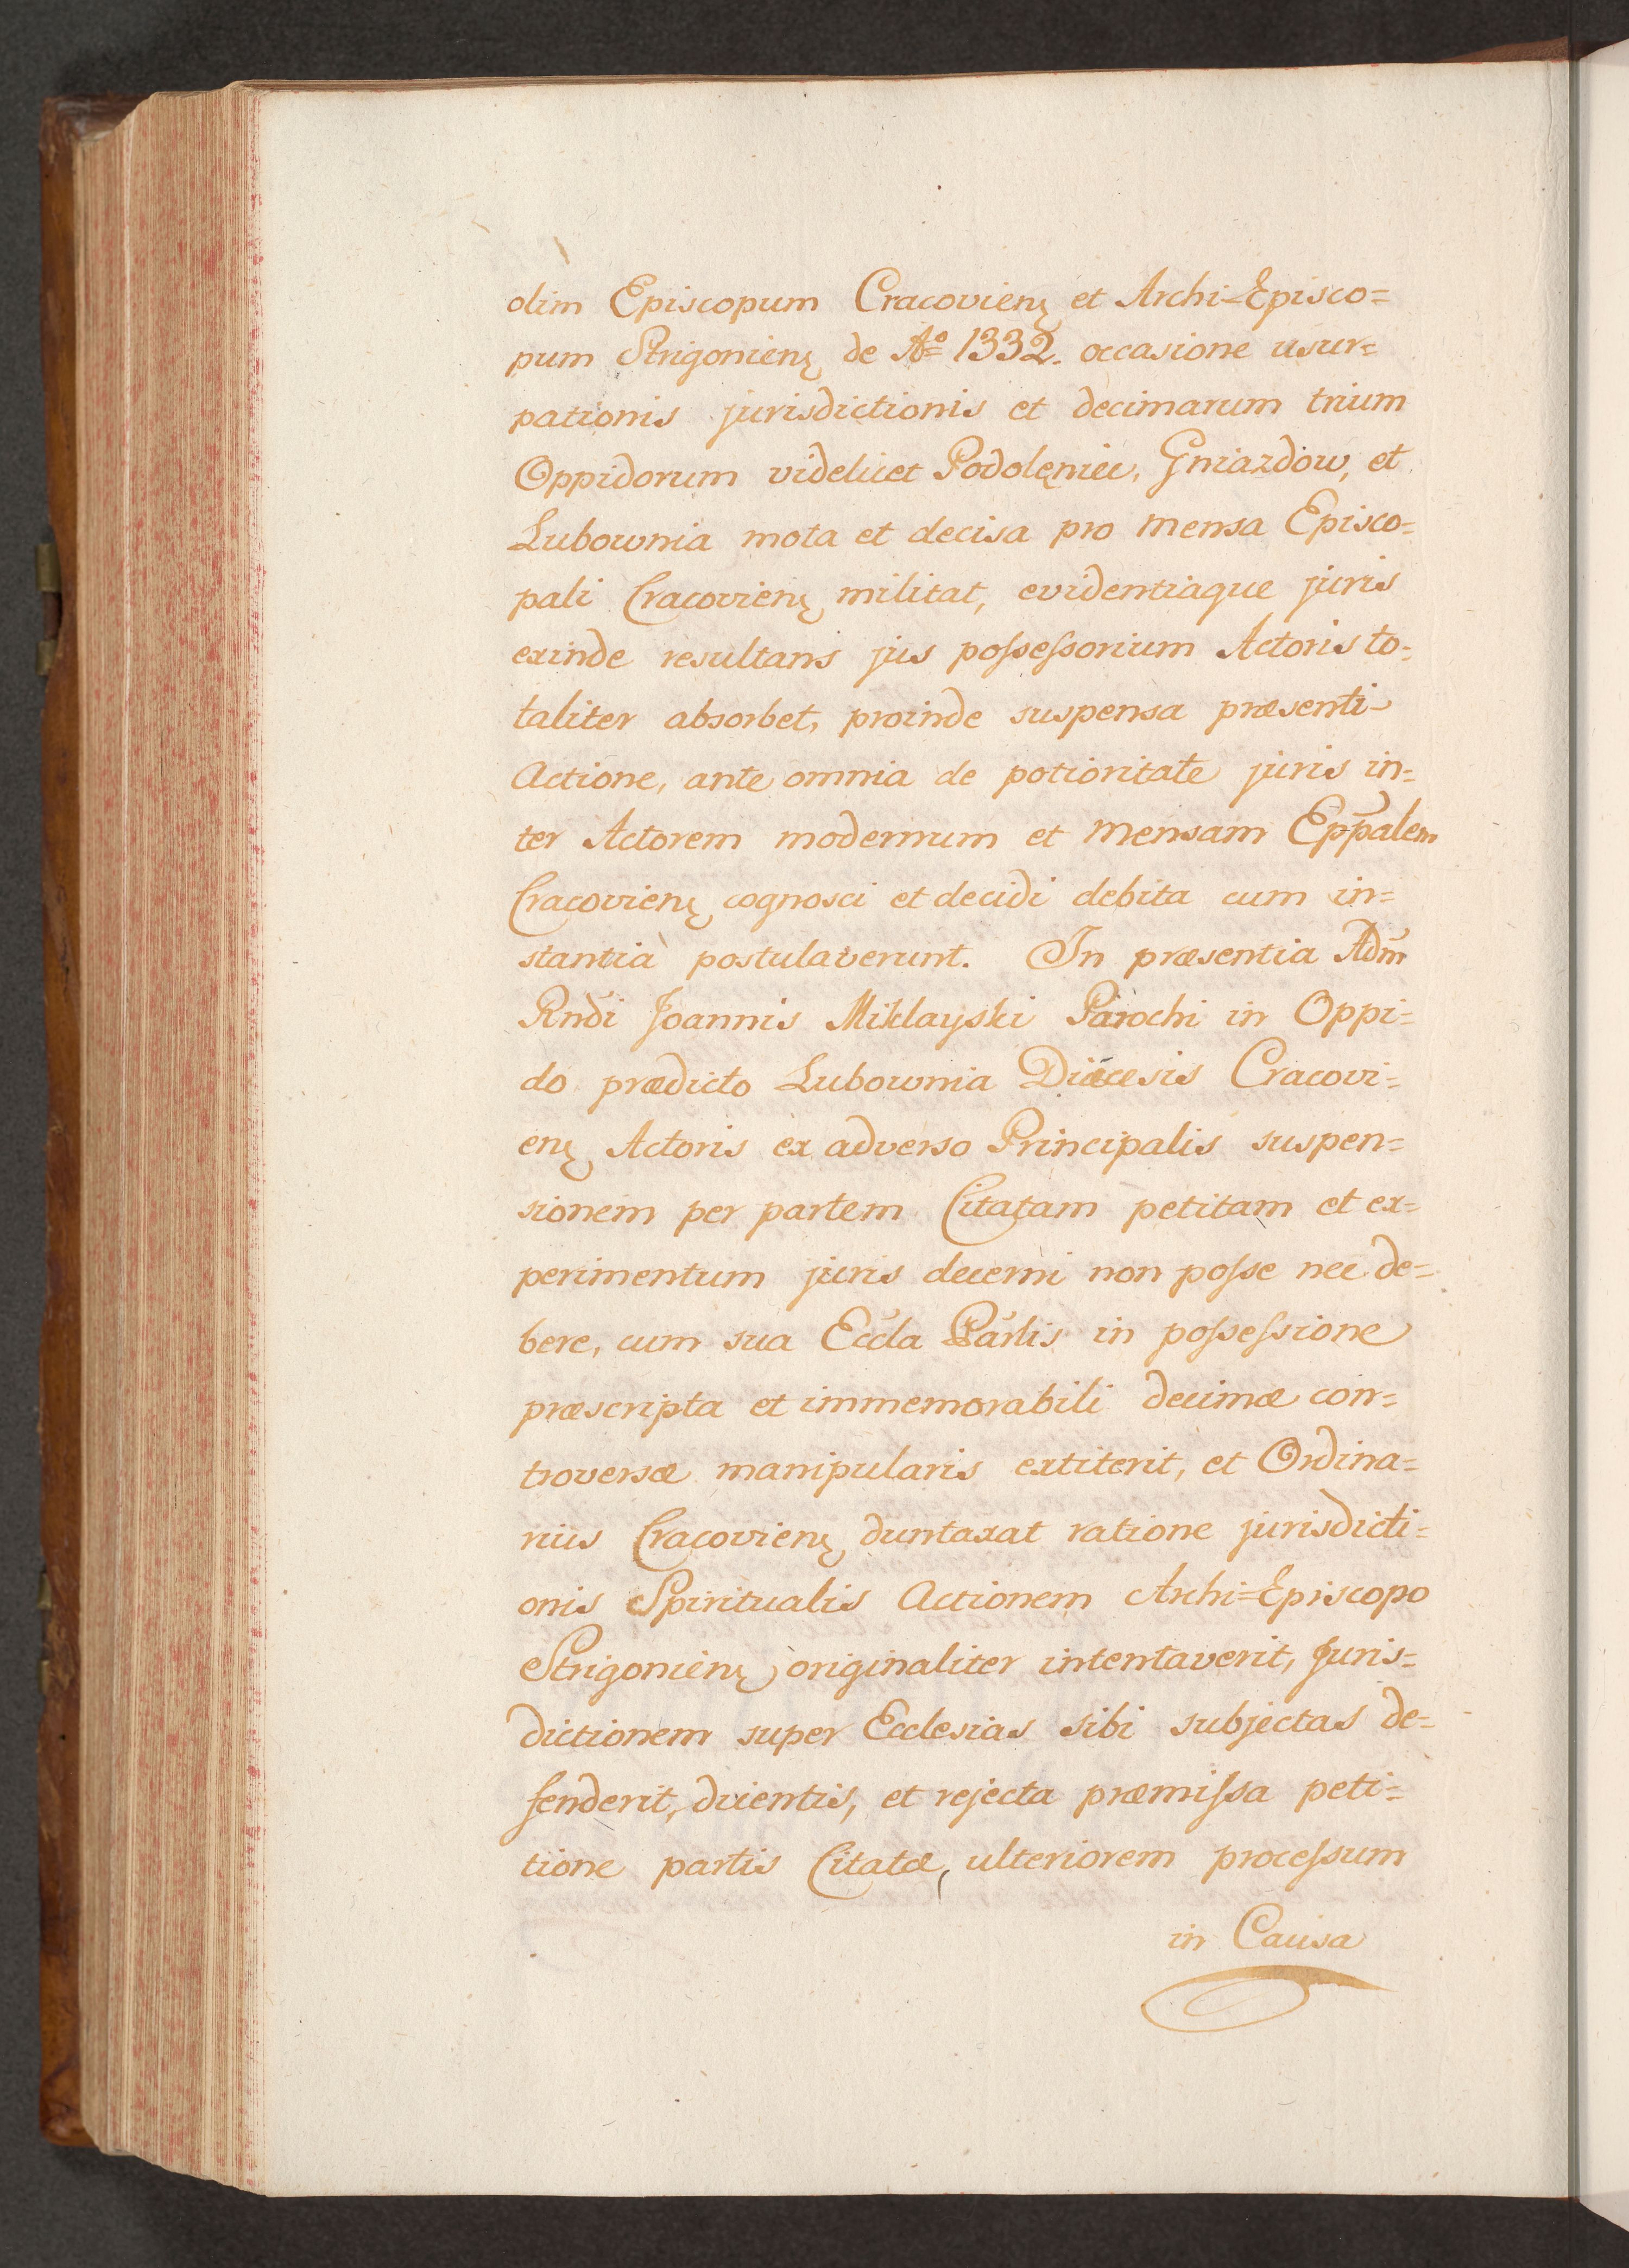 olim Episcopum Cracovienę et Archi-Episco=
pum Strigonienę de Aͦ= 1332. occasione usur=
pationis jurisdictionis et decimarum trium
Oppidorum videlicet Podolęniec, Gniazdow, et
Lubownia mota et decisa pro mensa Episco=
pali Cracovienę militat, evidentiaque juris
exinde resultans jus poſseſsorium Actoris to=
taliter absorbet, proinde suspensa præsenti
Actione, ante omnia de potioritate juris in=
ter Actorem modernum et mensam Epp̄alem
Cracovienę cognosci et decidi debita cum in=
stantia postulaverunt. In præsentia Adm̄
Rnd̄i Joannis Miklayski Parochi in Oppi=
do prædicto Lubownia Diæcesis Cracovi=
enę Actoris ex adverso Principalis suspen=
sionem per partem Citatam petitam et ex=
perimentum juris decerni non poſse nec de=
bere, cum sua Eccl̄a Parl̄is in poſseſsione
præscripta et immemorabili decimæ con=
troversæ manipularis extiterit, et Ordina=
rius Cracovienę duntaxat ratione jurisdicti=
onis Spiritualis Actionem Archi=Episcopo
Strigonienę originaliter intentaverit, Juris=
dictionem super Ecclesias sibi subjectas de=
fenderit, dicentis, et rejecta præmiſsa peti=
tione partis Citatæ, ulteriorem proceſsum
in Causa